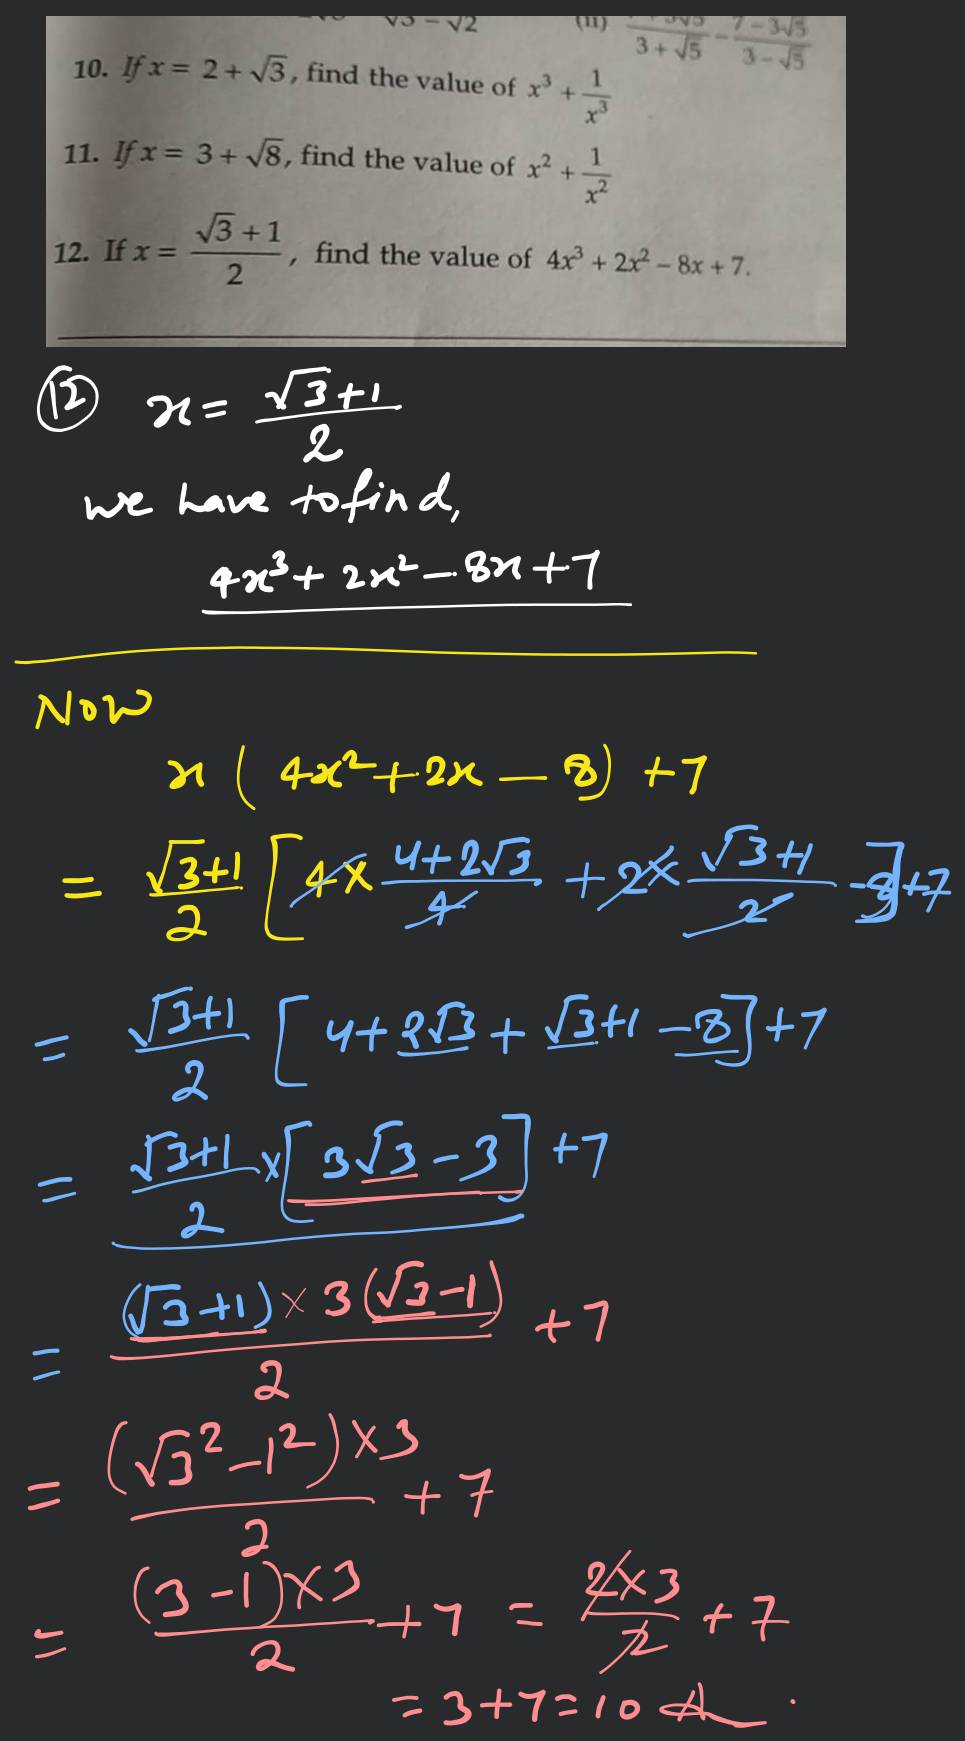 √3 − √2 (ii) 3 + √5 − 7 − 3√5 / 3 − √5
10. If x = 2 + √3, find the value of x³ + 1/x³
11. If x = 3 + √8, find the value of x² + 1/x²
12. If x = (√3 + 1)/2, find the value of 4x³ + 2x² − 8x + 7.
(12) x = (√3+1)/2
we have to find,
4x³ + 2x² − 8x + 7
Now
x (4x² + 2x − 8) + 7
= (√3+1)/2 [4 × (4+2√3)/4 + 2 × (√3+1)/2 − 8] + 7
= (√3+1)/2 [4 + 2√3 + √3+1 − 8] + 7
= (√3+1)/2 × [3√3 − 3] + 7
= (√3+1) × 3(√3−1)/2 + 7
= (√3² − 1²) × 3/2 + 7
= (3−1) × 3/2 + 7 = 2×3/2 + 7
= 3 + 7 = 10